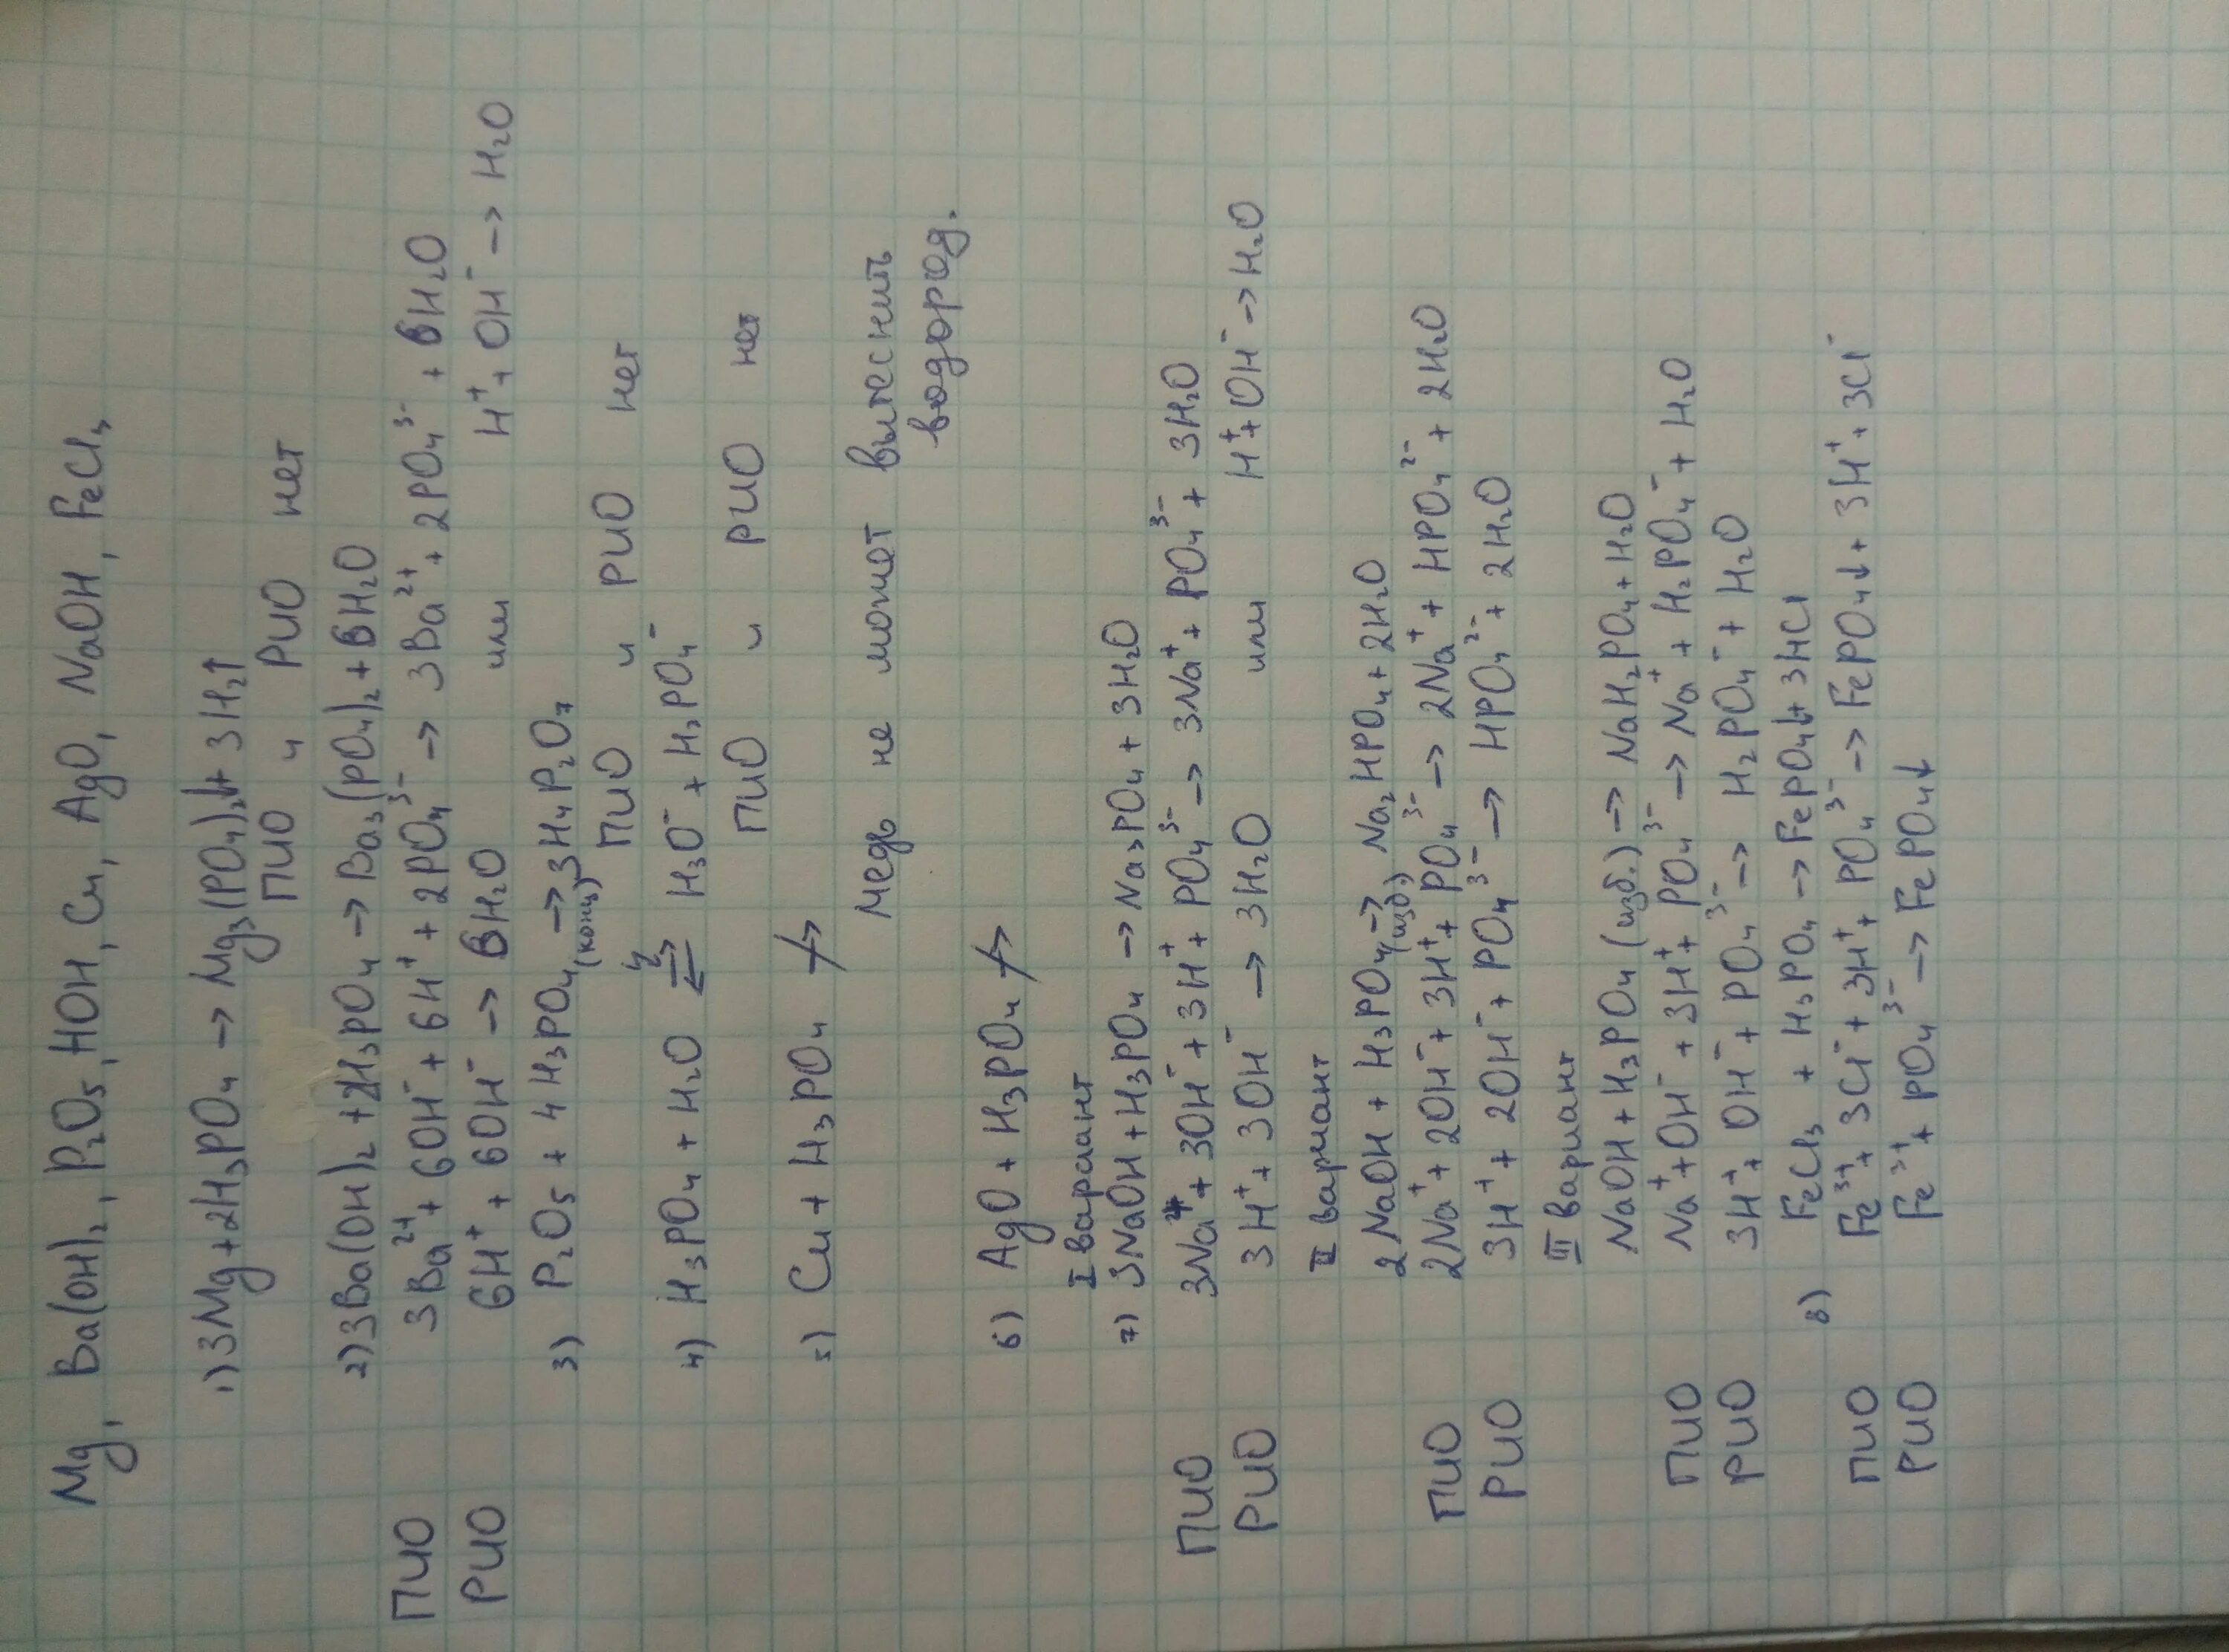 Mg, Ba(OH)₂, P₂O₅, HOH, Cu, AgO, NaOH, FeCl₃
1) 3Mg + 2H₃PO₄ → Mg₃(PO₄)₂↓ + 3H₂↑
ПИО и РИО нет
2) 3Ba(OH)₂ + 2H₃PO₄ → Ba₃(PO₄)₂ + 6H₂O
ПИО 3Ba²⁺ + 6OH⁻ + 6H⁺ + 2PO₄³⁻ → 3Ba²⁺ + 2PO₄³⁻ + 6H₂O
РИО 6H⁺ + 6OH⁻ → 6H₂O или H⁺ + OH⁻ → H₂O
3) P₂O₅ + 4H₃PO₄ (конц) → 3H₄P₂O₇
ПИО и РИО нет
4) H₃PO₄ + H₂O ⇄ H₃O⁻ + H₂PO₄⁻
ПИО и РИО нет
5) Cu + H₃PO₄ ↛
Медь не может вытеснить
водород.
6) AgO + H₃PO₄ ↛
I вариант
7) 3NaOH + H₃PO₄ → Na₃PO₄ + 3H₂O
ПИО 3Na⁺ + 3OH⁻ + 3H⁺ + PO₄³⁻ → 3Na⁺ + PO₄³⁻ + 3H₂O
РИО 3H⁺ + 3OH⁻ → 3H₂O или H⁺ + OH⁻ → H₂O
II вариант
2NaOH + H₃PO₄ (изб.) → Na₂HPO₄ + 2H₂O
ПИО 2Na⁺ + 2OH⁻ + 3H⁺ + PO₄³⁻ → 2Na⁺ + HPO₄²⁻ + 2H₂O
РИО 3H⁺ + 2OH⁻ + PO₄³⁻ → HPO₄²⁻ + 2H₂O
III вариант
NaOH + H₃PO₄ (изб.) → NaH₂PO₄ + H₂O
ПИО Na⁺ + OH⁻ + 3H⁺ + PO₄³⁻ → Na⁺ + H₂PO₄⁻ + H₂O
РИО 3H⁺ + OH⁻ + PO₄³⁻ → H₂PO₄⁻ + H₂O
8) FeCl₃ + H₃PO₄ → FePO₄↓ + 3HCl
ПИО Fe³⁺ + 3Cl⁻ + 3H⁺ + PO₄³⁻ → FePO₄↓ + 3H⁺ + 3Cl⁻
РИО Fe³⁺ + PO₄³⁻ → FePO₄↓